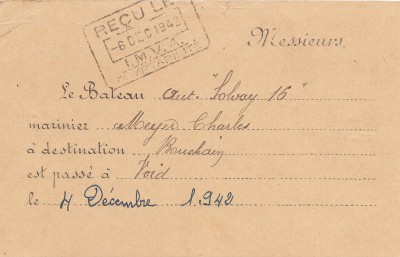 REÇU LE
-6 DEC 1942
I.M.V.A.
Messieurs,
Le Bateau aut. "Solvay 16"
marinier Meyer Charles
à destination Bouchain
est passé à Void
le 4 Décembre 1942